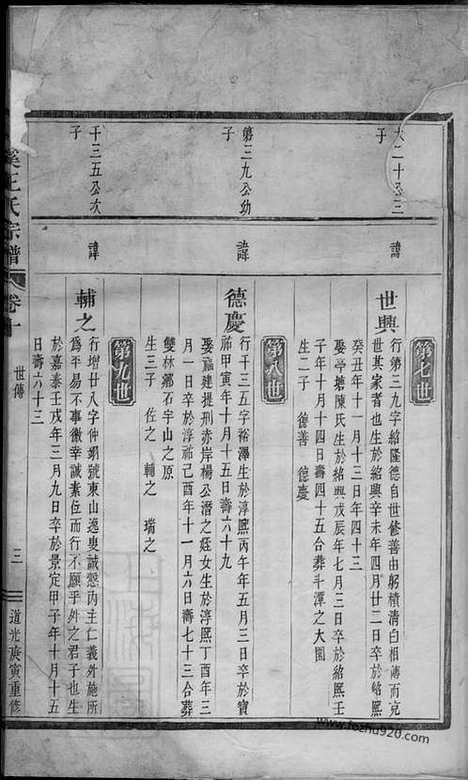 二十公三
子
諱
第七世
世興
行第三九字紹隆德自世修善由躬積清白相傳而克
世其家者也生於紹興辛未年四月廿二日卒於紹熙
癸丑年十一月十三日年四十三
娶亭塘陳氏生於紹興戊辰年七月三日卒於紹熙壬
子年十月十四日壽四十五合葬斗潭之大園
生二子 德善 德慶
第三九公幼
子
諱
第八世
德慶
行千三五字裕澤生於淳熙丙午年五月三日卒於寶
祐甲寅年十月十五日壽六十九
娶福建提刑赤岸楊公潛之姪女生於淳熙丁酉年三
月一日卒於淳祐己酉年十一月六日壽七十三合葬
雙林鄉石宇山之原
生三子 佐之 輔之 瑞之
千三五公次
子
諱
第九世
輔之
行增廿八字仲錫號東山逸叟誠愨内主仁義外施所
為平易不事徼幸誠素位而行不願乎外之君子也生
於嘉泰壬戌年三月九日卒於景定甲子年十月十五
日壽六十三
溪王氏宗譜
卷十
世傳
三
道光庚寅重修
www.fozhu920.com